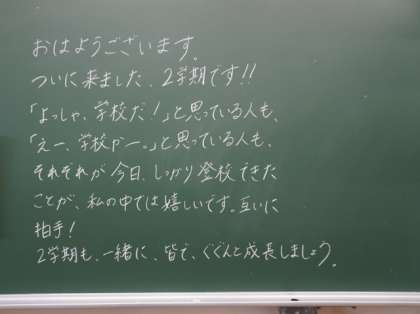 おはようございます。
ついに来ました、2学期です!!
「よっしゃ、学校だ！」と思っている人も、
「えー、学校かー。」と思っている人も、
それぞれが今日、しっかり登校できた
ことが、私の中では嬉しいです。互いに
拍手！
2学期も、一緒に、皆で、ぐぐんと成長しましょう。